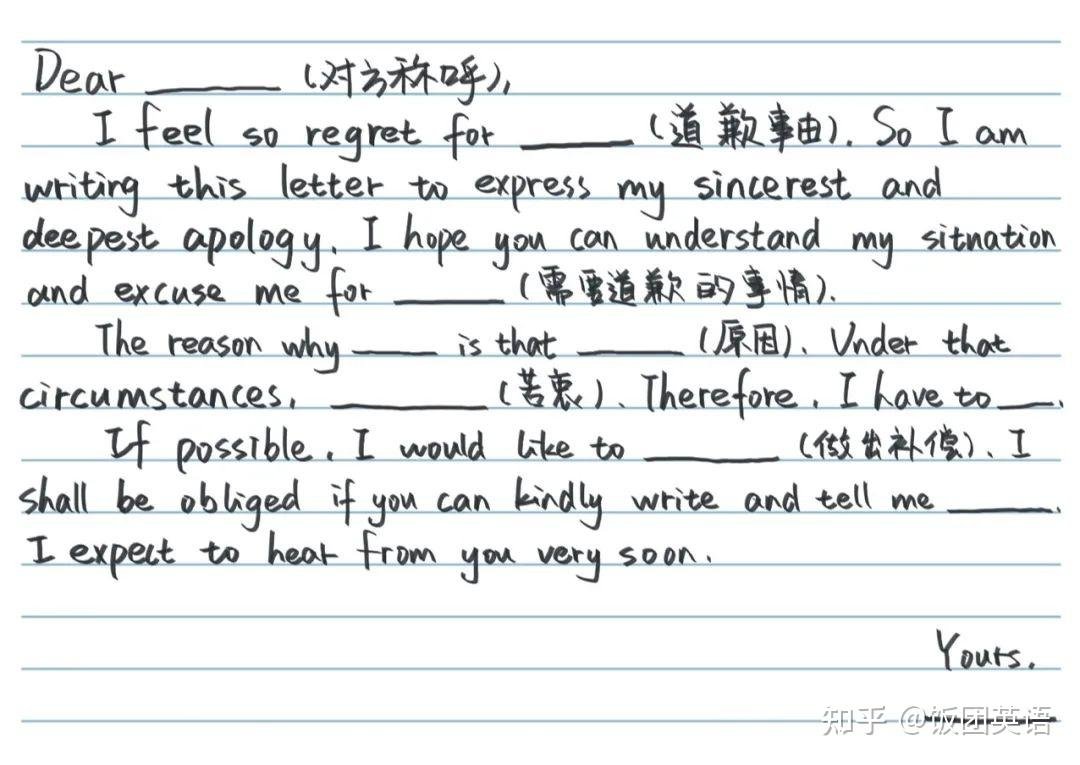 Dear ______ (对方称呼),
I feel so regret for _____ (道歉事由). So I am
writing this letter to express my sincerest and
deepest apology. I hope you can understand my situation
and excuse me for _____ (需要道歉的事情).
The reason why ____ is that _____ (原因). Under that
circumstances, _______ (苦衷). Therefore, I have to __.
If possible, I would like to ______ (做出补偿). I
shall be obliged if you can kindly write and tell me _____.
I expect to hear from you very soon.
Yours,
知乎 @饭团英语